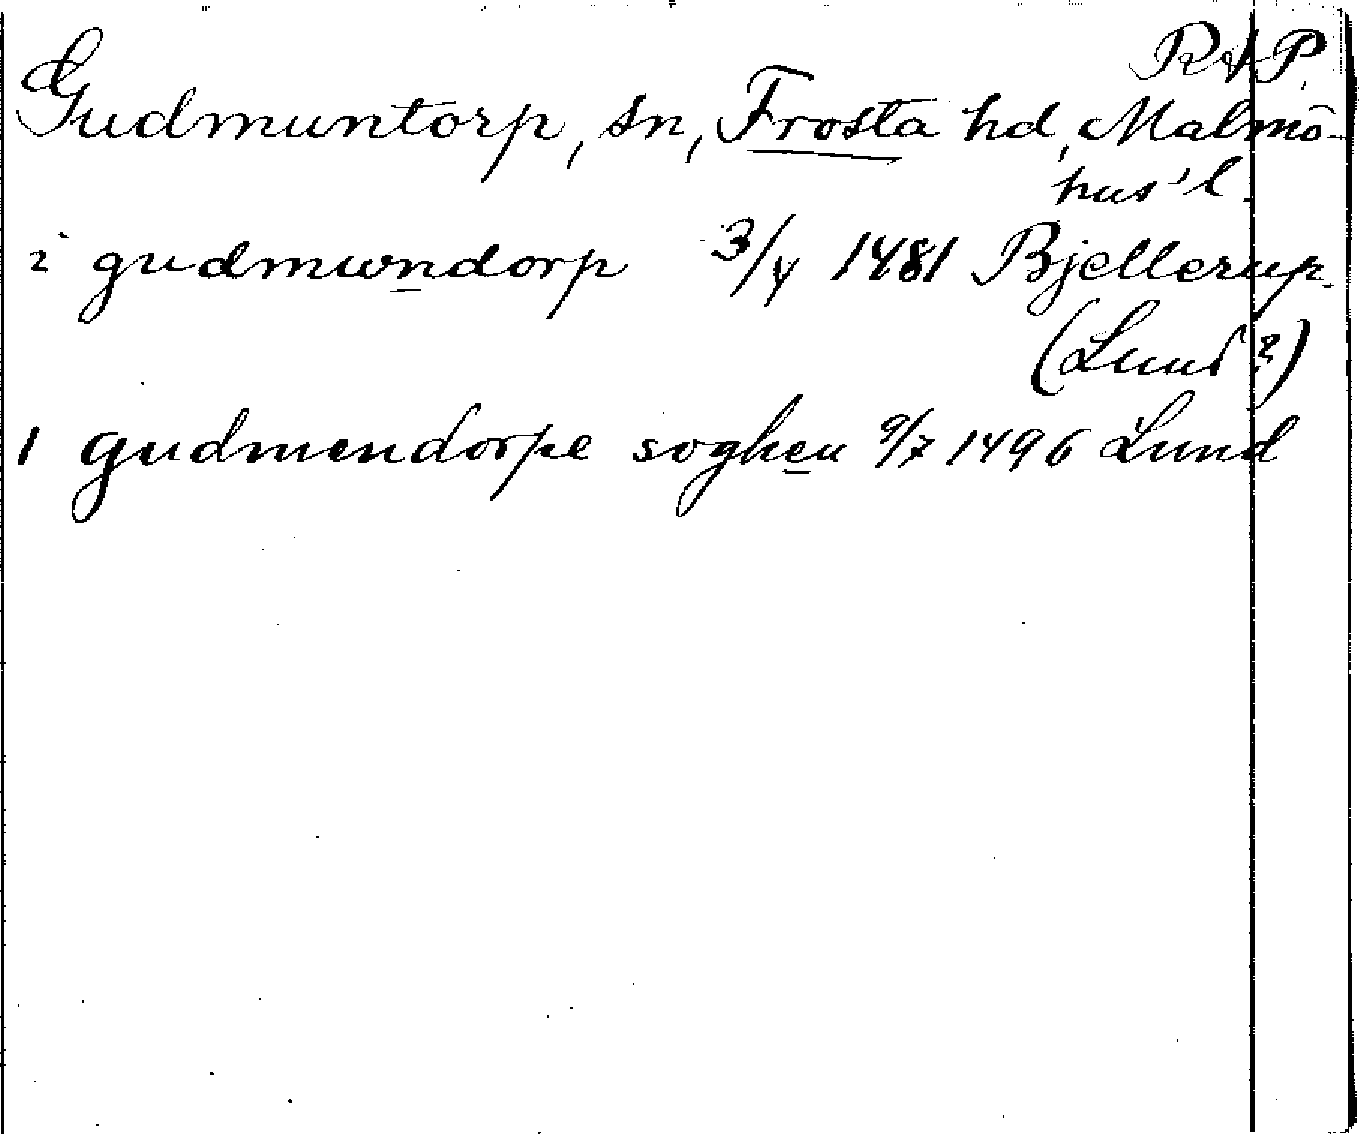 RAP.
Gudmuntorp, sn, Frosta hd, Malmö-
hus' l.
i gudmundorp 3/4 1481 Bjellerup.
(Lund?)
1 gudmendorpe soghen 9/7 1496 Lund